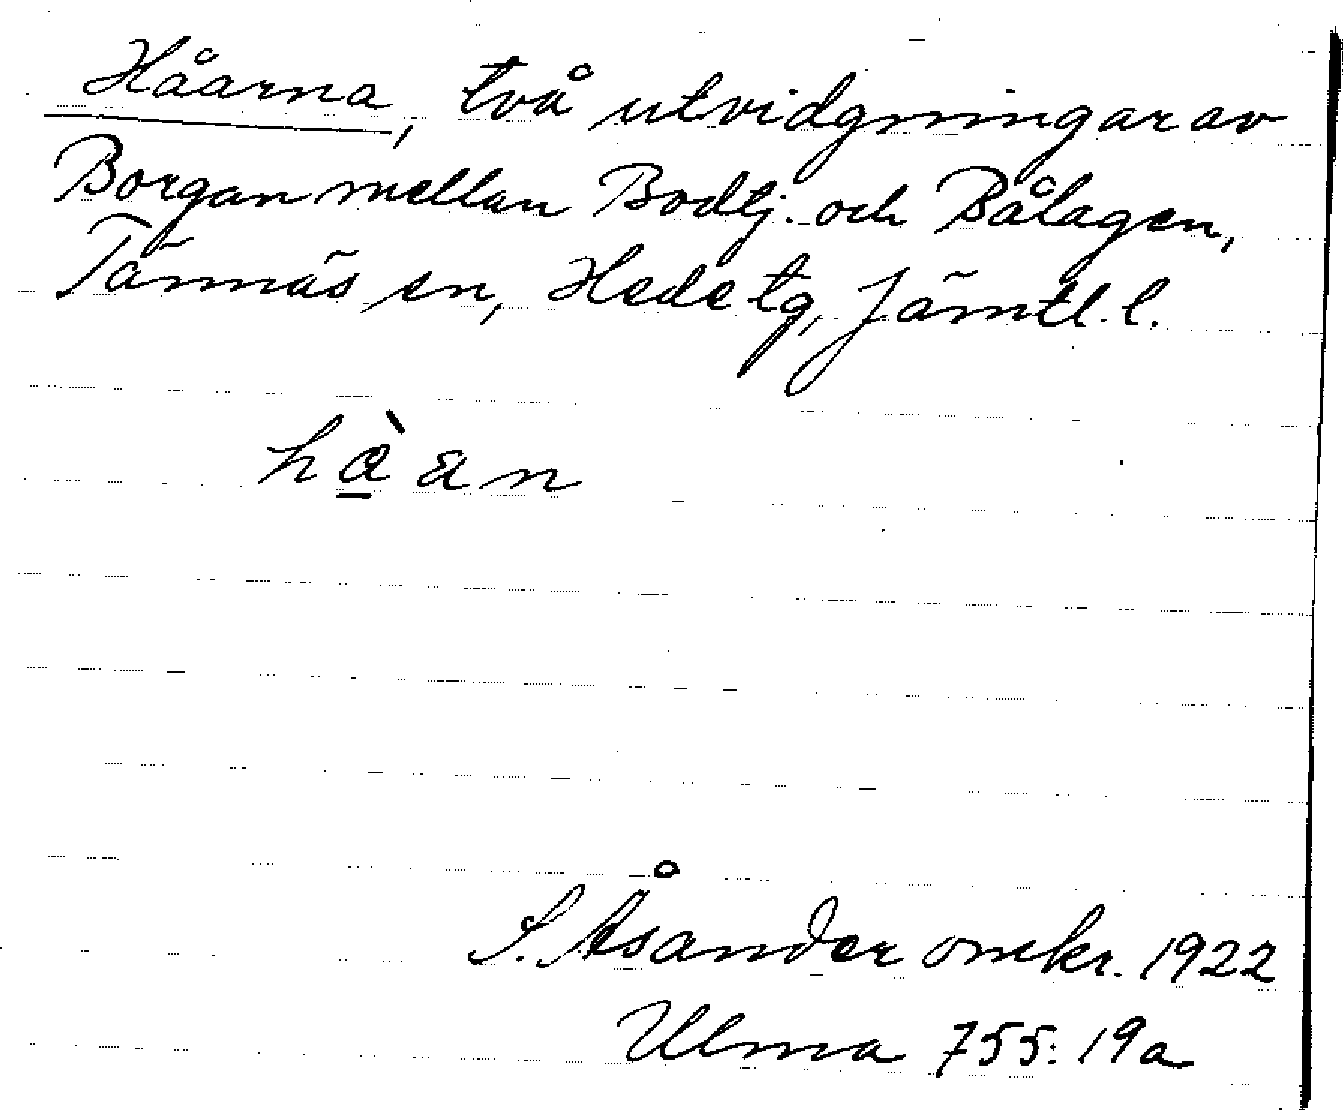 Håarna, två utvidgningar av
Borgan mellan Bodtj. och Bålagen,
Tännäs sn, Hede tg, Jämtl. l.
hàan
S. Åsander omkr. 1922
Ulma 755: 19a